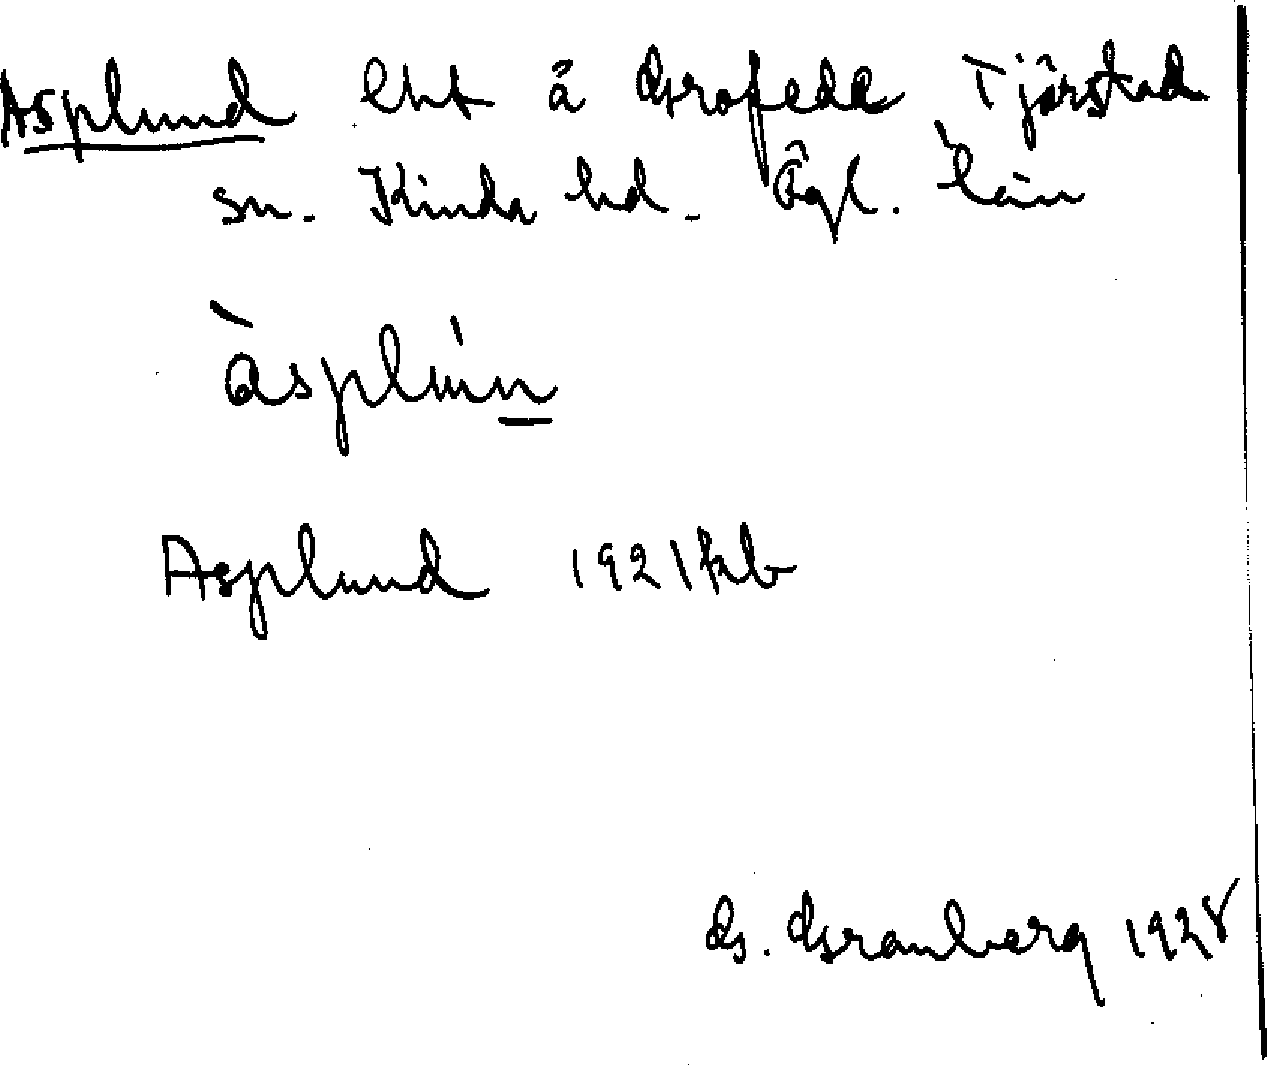 Asplund lht å Grofede Tjärstad
sn. Kinda hd. Ögl. län
àsplún
Asplund 1921 kb
G. Granberg 1928